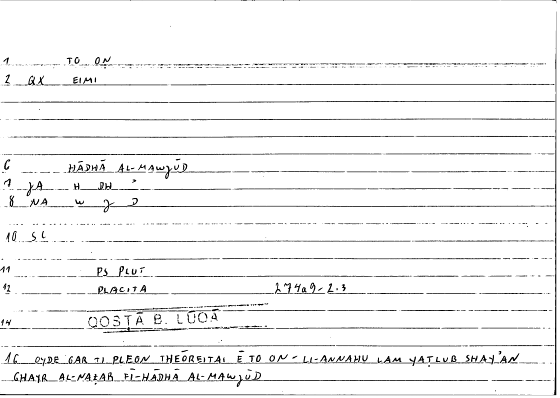 1 TO ON
2 QX EIMI
6 HĀDHĀ AL-MAWJŪD
7 JA H DH ʾ
8 NA W J D
10 SL
11 PS PLUT
12 PLACITA 274a9-2.3
14 QOSṬĀ B. LŪQĀ
16 OYDE GAR TI PLEON THEŌREITAI Ē TO ON - LI-ANNAHU LAM YAṬLUB SHAYʾAN
GHAYR AL-NAẒAR FĪ-HĀDHĀ AL-MAWJŪD